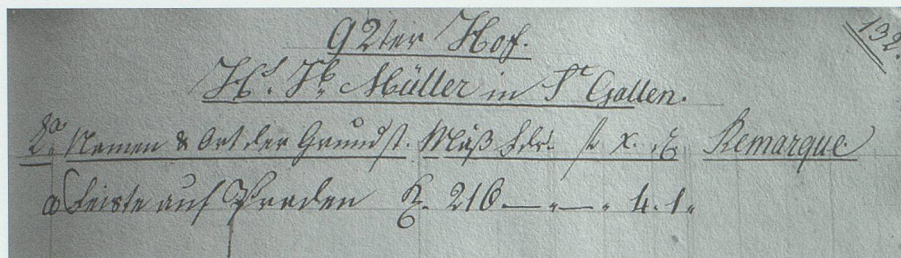 92ter Hof. 132.
Hs. Jb. Müller in St Gallen.
Namen & Ort der Grundst. Mäß fl. x. Remarque
a Leiste auf Praden 216 — „ — „ 4. 1„